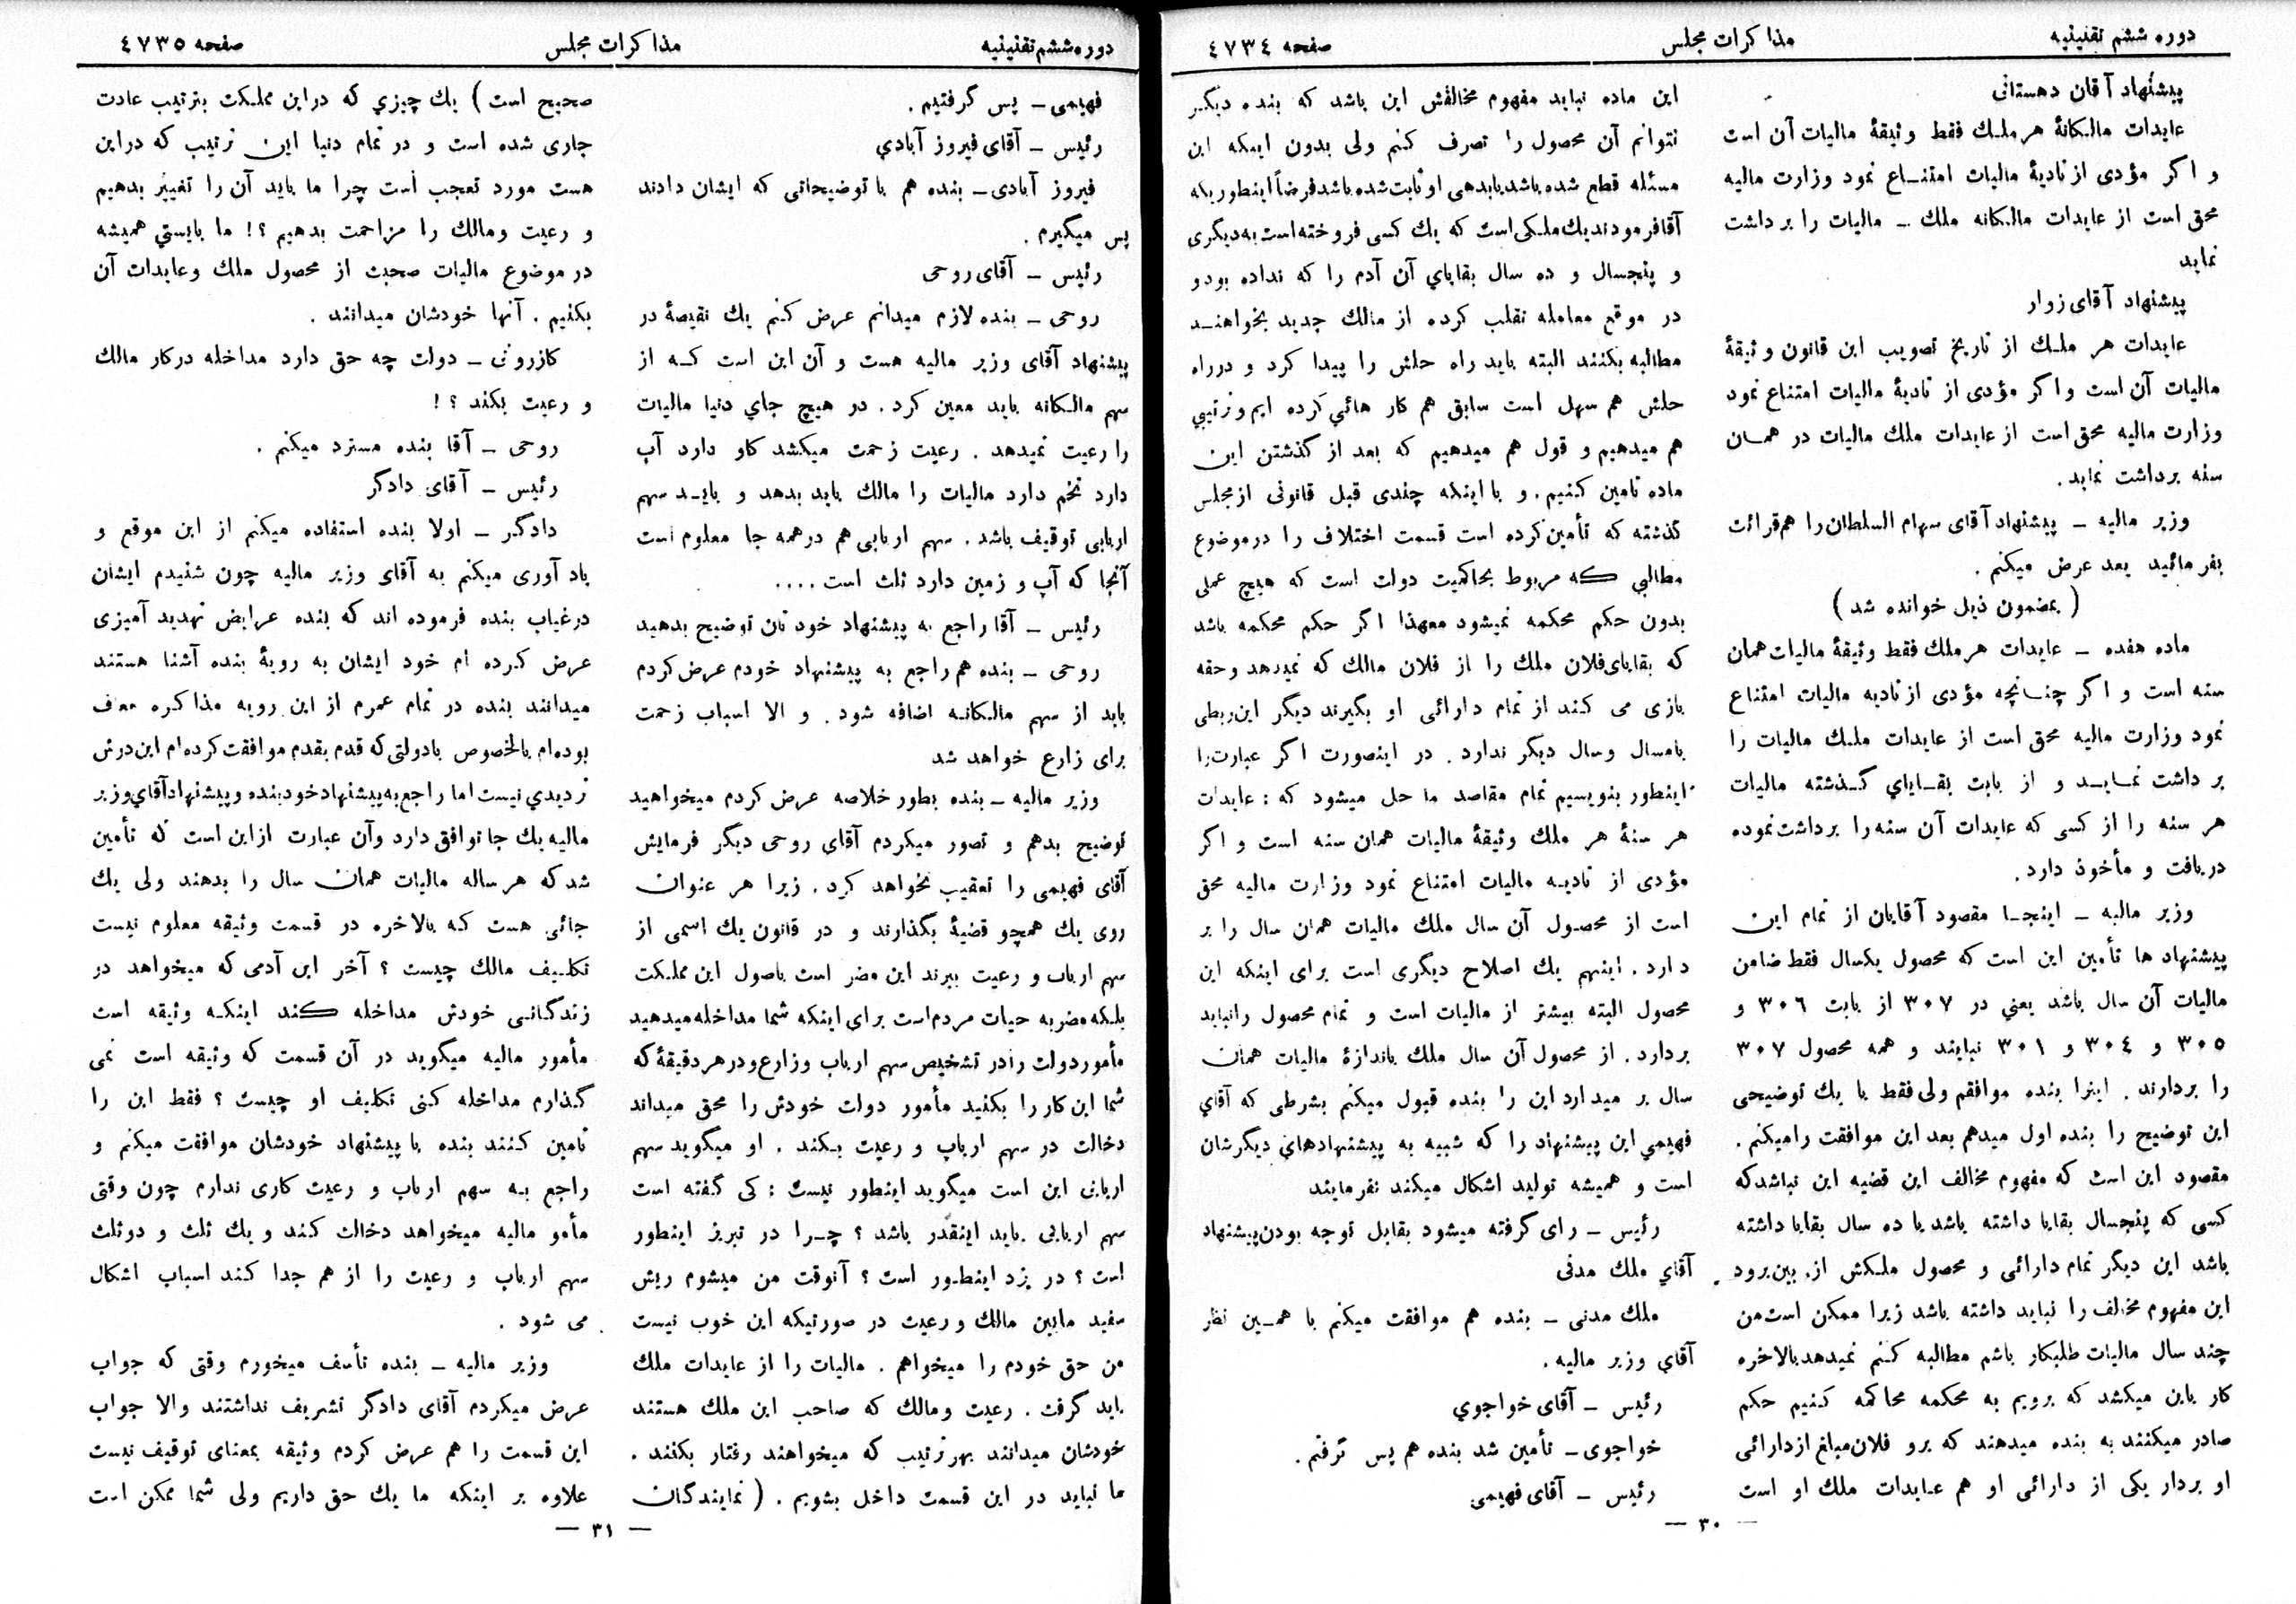 دوره ششم تقنینیه
مذاکرات مجلس
صفحه ٤٧٣٤
پیشنهاد آقان دهستانی
عایدات مالکانهٔ هر ملك فقط وثیقهٔ مالیات آن است
و اگر مؤدی از تادیهٔ مالیات امتنـاع نمود وزارت مالیه
محق است از عایدات مالکانه ملك ـ مالیات را برداشت
نماید
پیشنهاد آقای زوار
عایدات هر ملك از تاریخ تصویب این قانون وثیقهٔ
مالیات آن است و اگر مؤدی از تادیهٔ مالیات امتناع نمود
وزارت مالیه محق است از عایدات ملك مالیات در همـان
سنه برداشت نماید.
وزیر مالیه ـ پیشنهاد آقای سهام السلطان را هم قرائت
بفرمائید بعد عرض میکنم .
( بمضمون ذیل خوانده شد )
ماده هفده ـ عایدات هر ملك فقط وثیقهٔ مالیات همان
سنه است و اگر چنـانچه مؤدی از تادیه مالیات امتناع
نمود وزارت مالیه محق است از عایدات ملك مالیات را
برداشت نمـایـد و از بابت بقـایاي گـذشته مالیات
هر سنه را از کسی که عایدات آن سنه را برداشت نموده
دریافت و مأخوذ دارد.
وزیر مالیه ـ اینجـا مقصود آقایان از تمام این
پیشنهاد ها تأمین این است که محصول یکسال فقط ضامن
مالیات آن سال باشد یعنی در ٣٠٧ از بابت ٣٠٦ و
٣٠٥ و ٣٠٤ و ٣٠١ نیایند و همه محصول ٣٠٧
را بردارند . اینرا بنده موافقم ولی فقط با یك توضیحی
این توضیح را بنده اول میدهم بعد این موافقت را میکنم .
مقصود این است که مفهوم مخالف این قضیه این نباشد که
کسی که پنجسال بقایا داشته باشد یا ده سال بقایا داشته
باشد این دیگر تمام دارائی و محصول ملکش از بین برود
این مفهوم مخالف را نباید داشته باشد زیرا ممکن است من
چند سال مالیات طلبکار باشم مطالبه کنم نمیدهد بالاخره
کار باین میکشد که برویم به محکمه محاکمه کنیم حکم
صادر میکنند به بنده میدهند که برو فلان مبلغ از دارائی
او بردار یکی از دارائی او هم عایدات ملك او است
این ماده نباید مفهوم مخالفش این باشد که بنده دیگـر
نتوانم آن محصول را تصرف کنم ولی بدون اینکه این
مسئله قطع شده باشد یا بدهی او ثابت شده باشد فرضاً اینطوریکه
آقا فرمودند یك ملکی است که یك کسی فروخته است به دیگری
و پنجسال و ده سال بقایاي آن آدم را که نداده بود و
در موقع معامله تقلب کرده از مالك جدید بخواهنـد
مطالبه بکنند البته باید راه حلش را پیدا کرد و در راه
حلش هم سهل است سابق هم کار هائی کرده ایم و ترتیبی
هم میدهیم و قول هم میدهیم که بعد از گذشتن این
ماده تامین کنیم. و با اینکه چندی قبل قانونی از مجلس
گذشته که تأمین کرده است قسمت اختلاف را در موضوع
مطالبی که مربوط بحاکمیت دولت است که هیچ عملی
بدون حکم محکمه نمیشود معهذا اگر حکم محکمه باشد
که بقایای فلان ملك را از فلان مالك که نمیدهد و حقه
بازی می کند از تمام دارائی او بگیرند دیگر این ربطی
بامسال وسال دیگر ندارد . در اینصورت اگر عبارت را
اینطور بنویسیم تمام مقاصد ما حل میشود که : عایدات
هر سنهٔ هر ملك وثیقهٔ مالیات همان سنه است و اگر
مؤدی از تادیـه مالیات امتناع نمود وزارت مالیه محق
است از محصول آن سال ملك مالیات همان سال را بر
دارد . اینهم یك اصلاح دیگری است برای اینکه این
محصول البته بیشتر از مالیات است و تمام محصول را نباید
بردارد . از محصول آن سال ملك باندازهٔ مالیات همان
سال بر میدارد این را بنده قبول میکنم بشرطی که آقاي
فهیمي این پیشنهاد را که شبیه به پیشنهادهاي دیگرشان
است و همیشه تولید اشکال میکند نفرمایند
رئیس ـ رای گرفته میشود بقابل توجه بودن پیشنهاد
آقاي ملك مدنی
ملك مدنی ـ بنده هم موافقت میکنم با همـین نظر
آقاي وزیر مالیه .
رئیس ـ آقای خواجوي
خواجوی ـ تأمین شد بنده هم پس گرفتم .
رئیس ـ آقای فهیمی
— ٣٠ —
دوره ششم تقنینیه
مذاکرات مجلس
صفحه ٤٧٣٥
فهیمی ـ پس گرفتیم .
رئیس ـ آقای فیروز آبادي
فیروز آبادی ـ بنده هم با توضیحاتی که ایشان دادند
پس میگیرم .
رئیس ـ آقای روحی
روحی ـ بنده لازم میدانم عرض کنم یك نقیصهٔ در
پیشنهاد آقای وزیر مالیه هست و آن این است کـه از
سهم مالکانه باید معین کرد . در هیچ جاي دنیا مالیات
را رعیت نمیدهد . رعیت زحمت میکشد کاو دارد آب
دارد تخم دارد مالیات را مالك باید بدهد و بایـد سهم
اربابی توقیف باشد . سهم اربابی هم در همه جا معلوم است
آنجا که آب و زمین دارد ثلث است ....
رئیس ـ آقا راجع به پیشنهاد خودتان توضیح بدهید
روحی ـ بنده هم راجع به پیشنهاد خودم عرض کردم
باید از سهم مالکانه اضافه شود . و الا اسباب زحمت
برای زارع خواهد شد
وزیر مالیه ـ بنده بطور خلاصه عرض کردم میخواهید
توضیح بدهم و تصور میکردم آقاي روحی دیگر فرمایش
آقای فهیمی را تعقیب نخواهد کرد . زیرا هر عنوان
روی یك همچو قضیهٔ بگذارند و در قانون یك اسمی از
سهم ارباب و رعیت ببرند این مضر است باصول این مملکت
بلکه مضر به حیات مردم است برای اینکه شما مداخله میدهید
مأمور دولت را در تشخیص سهم ارباب وزارع و در هر دقیقهٔ که
شما این کار را بکنید مأمور دولت خودش را محق میداند
دخالت در سهم ارباب و رعیت بکند . او میگوید سهم
اربابی این است میگوید اینطور نیست : کی گفته است
سهم اربابی باید اینقدر باشد ؟ چـرا در تبریز اینطور
است ؟ در یزد اینطـور است ؟ آنوقت من میشوم ریش
سفید مابین مالك و رعیت در صورتیکه این خوب نیست
من حق خودم را میخواهم . مالیات را از عایدات ملك
باید گرفت . رعیت ومالك که صاحب این ملك هستند
خودشان میدانند بهر ترتیب که میخواهند رفتار بکنند .
ما نباید در این قسمت داخل بشویم . ( نمایندگان
صحیح است ) یك چیزي که در این مملکت بترتیب عادت
جاری شده است و در تمام دنیا این ترتیب که در این
هست مورد تعجب است چرا ما باید آن را تغییر بدهیم
و رعیت ومالك را مزاحمت بدهیم ؟! ما بایستي همیشه
در موضوع مالیات صحبت از محصول ملك وعایدات آن
بکنیم . آنها خودشان میدانند .
کازرونی ـ دولت چه حق دارد مداخله در کار مالك
و رعیت بکند ؟ !
روحی ـ آقا بنده مسترد میکنم .
رئیس ـ آقای دادگر
دادگر ـ اولا بنده استفاده میکنم از این موقع و
یاد آوری میکنم به آقای وزیر مالیه چون شنیدم ایشان
در غیاب بنده فرموده اند که بنده عرایض تهدید آمیزی
عرض کرده ام خود ایشان به رویهٔ بنده آشنا هستند
میدانند بنده در تمام عمرم از این رویه مذاکره معاف
بوده‌ام بالخصوص بادولتی که قدم بقدم موافقت کرده‌ام این درش
تردیدي نیست اما راجع به پیشنهاد خود بنده و پیشنهاد آقاي وزیر
مالیه یك جا توافق دارد وآن عبارت از این است که تأمین
شد که هر ساله مالیات همان سال را بدهند ولی یك
جائی هست که بالاخره در قسمت وثیقه معلوم نیست
تکلیف مالك چیست ؟ آخر این آدمی که میخواهد در
زندگانی خودش مداخله کند اینکه وثیقه است
مأمور مالیه میگوید در آن قسمت که وثیقه است نمی
گذارم مداخله کنی تکلیف او چیست ؟ فقط این را
تامین کنند بنده با پیشنهاد خودشان موافقت میکنم و
راجع به سهم ارباب و رعیت کاری ندارم چون وقتی
مأمو مالیه میخواهد دخالت کند و یك ثلث و دو ثلث
سهم ارباب و رعیت را از هم جدا کند اسباب اشکال
می شود .
وزیر مالیه ـ بنده تأسف میخورم وقتی که جواب
عرض میکردم آقای دادگر تشریف نداشتند والا جواب
این قسمت را هم عرض کردم وثیقه بمعنای توقیف نیست
علاوه بر اینکه ما یك حق داریم ولی شما ممکن است
— ٣١ —